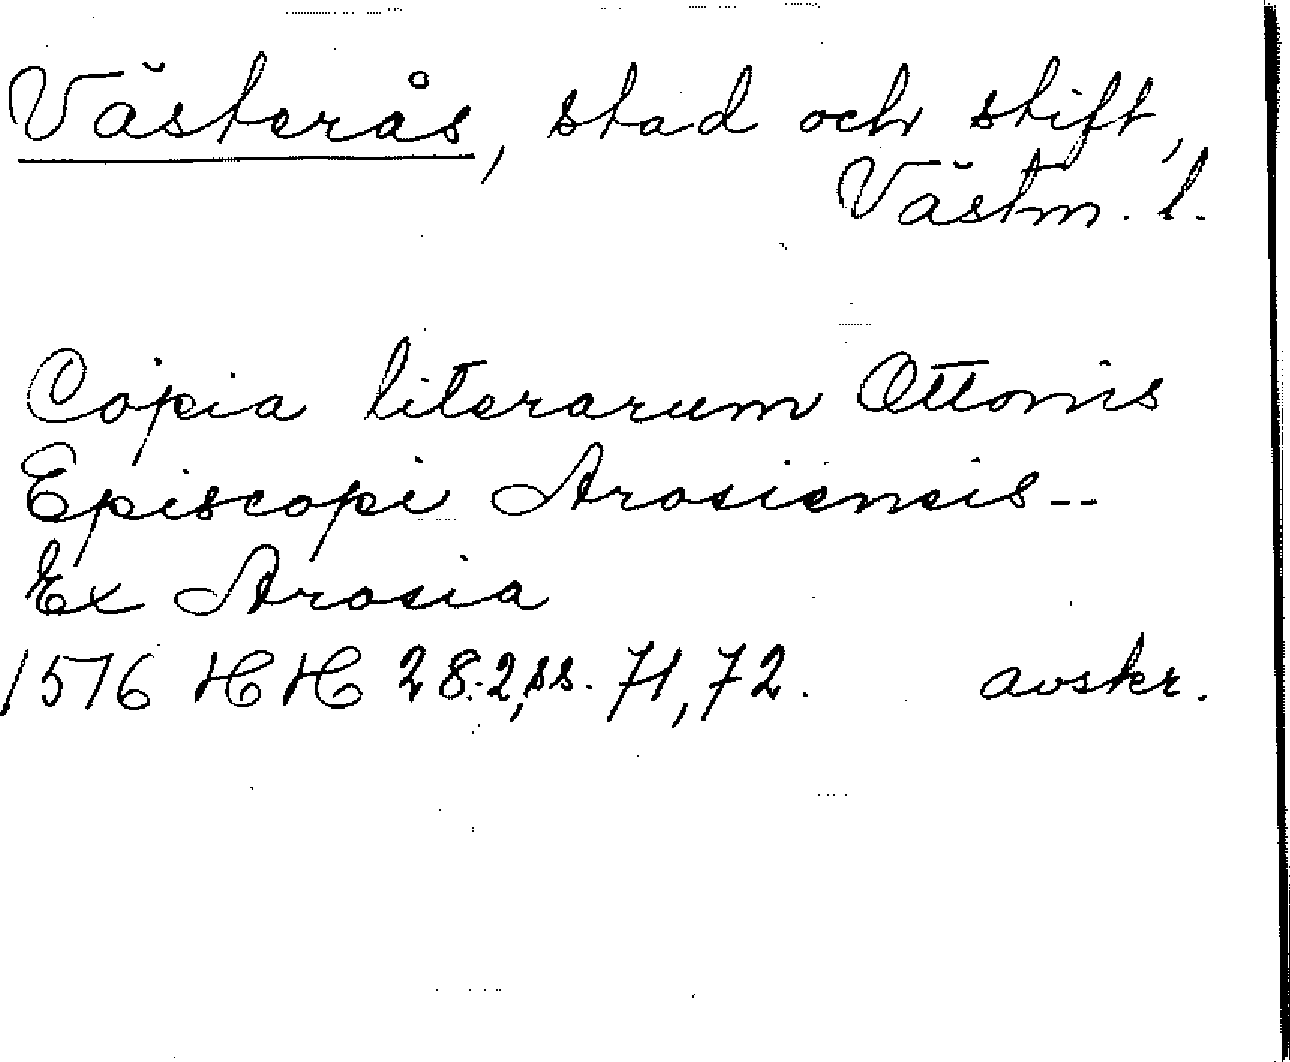 Västerås, stad och stift,
Västm. l.
Copia literarum Ottonis
Episcopi Arosiensis--
Ex Arosia
1576 HH 28:2, ss. 71, 72. avskr.